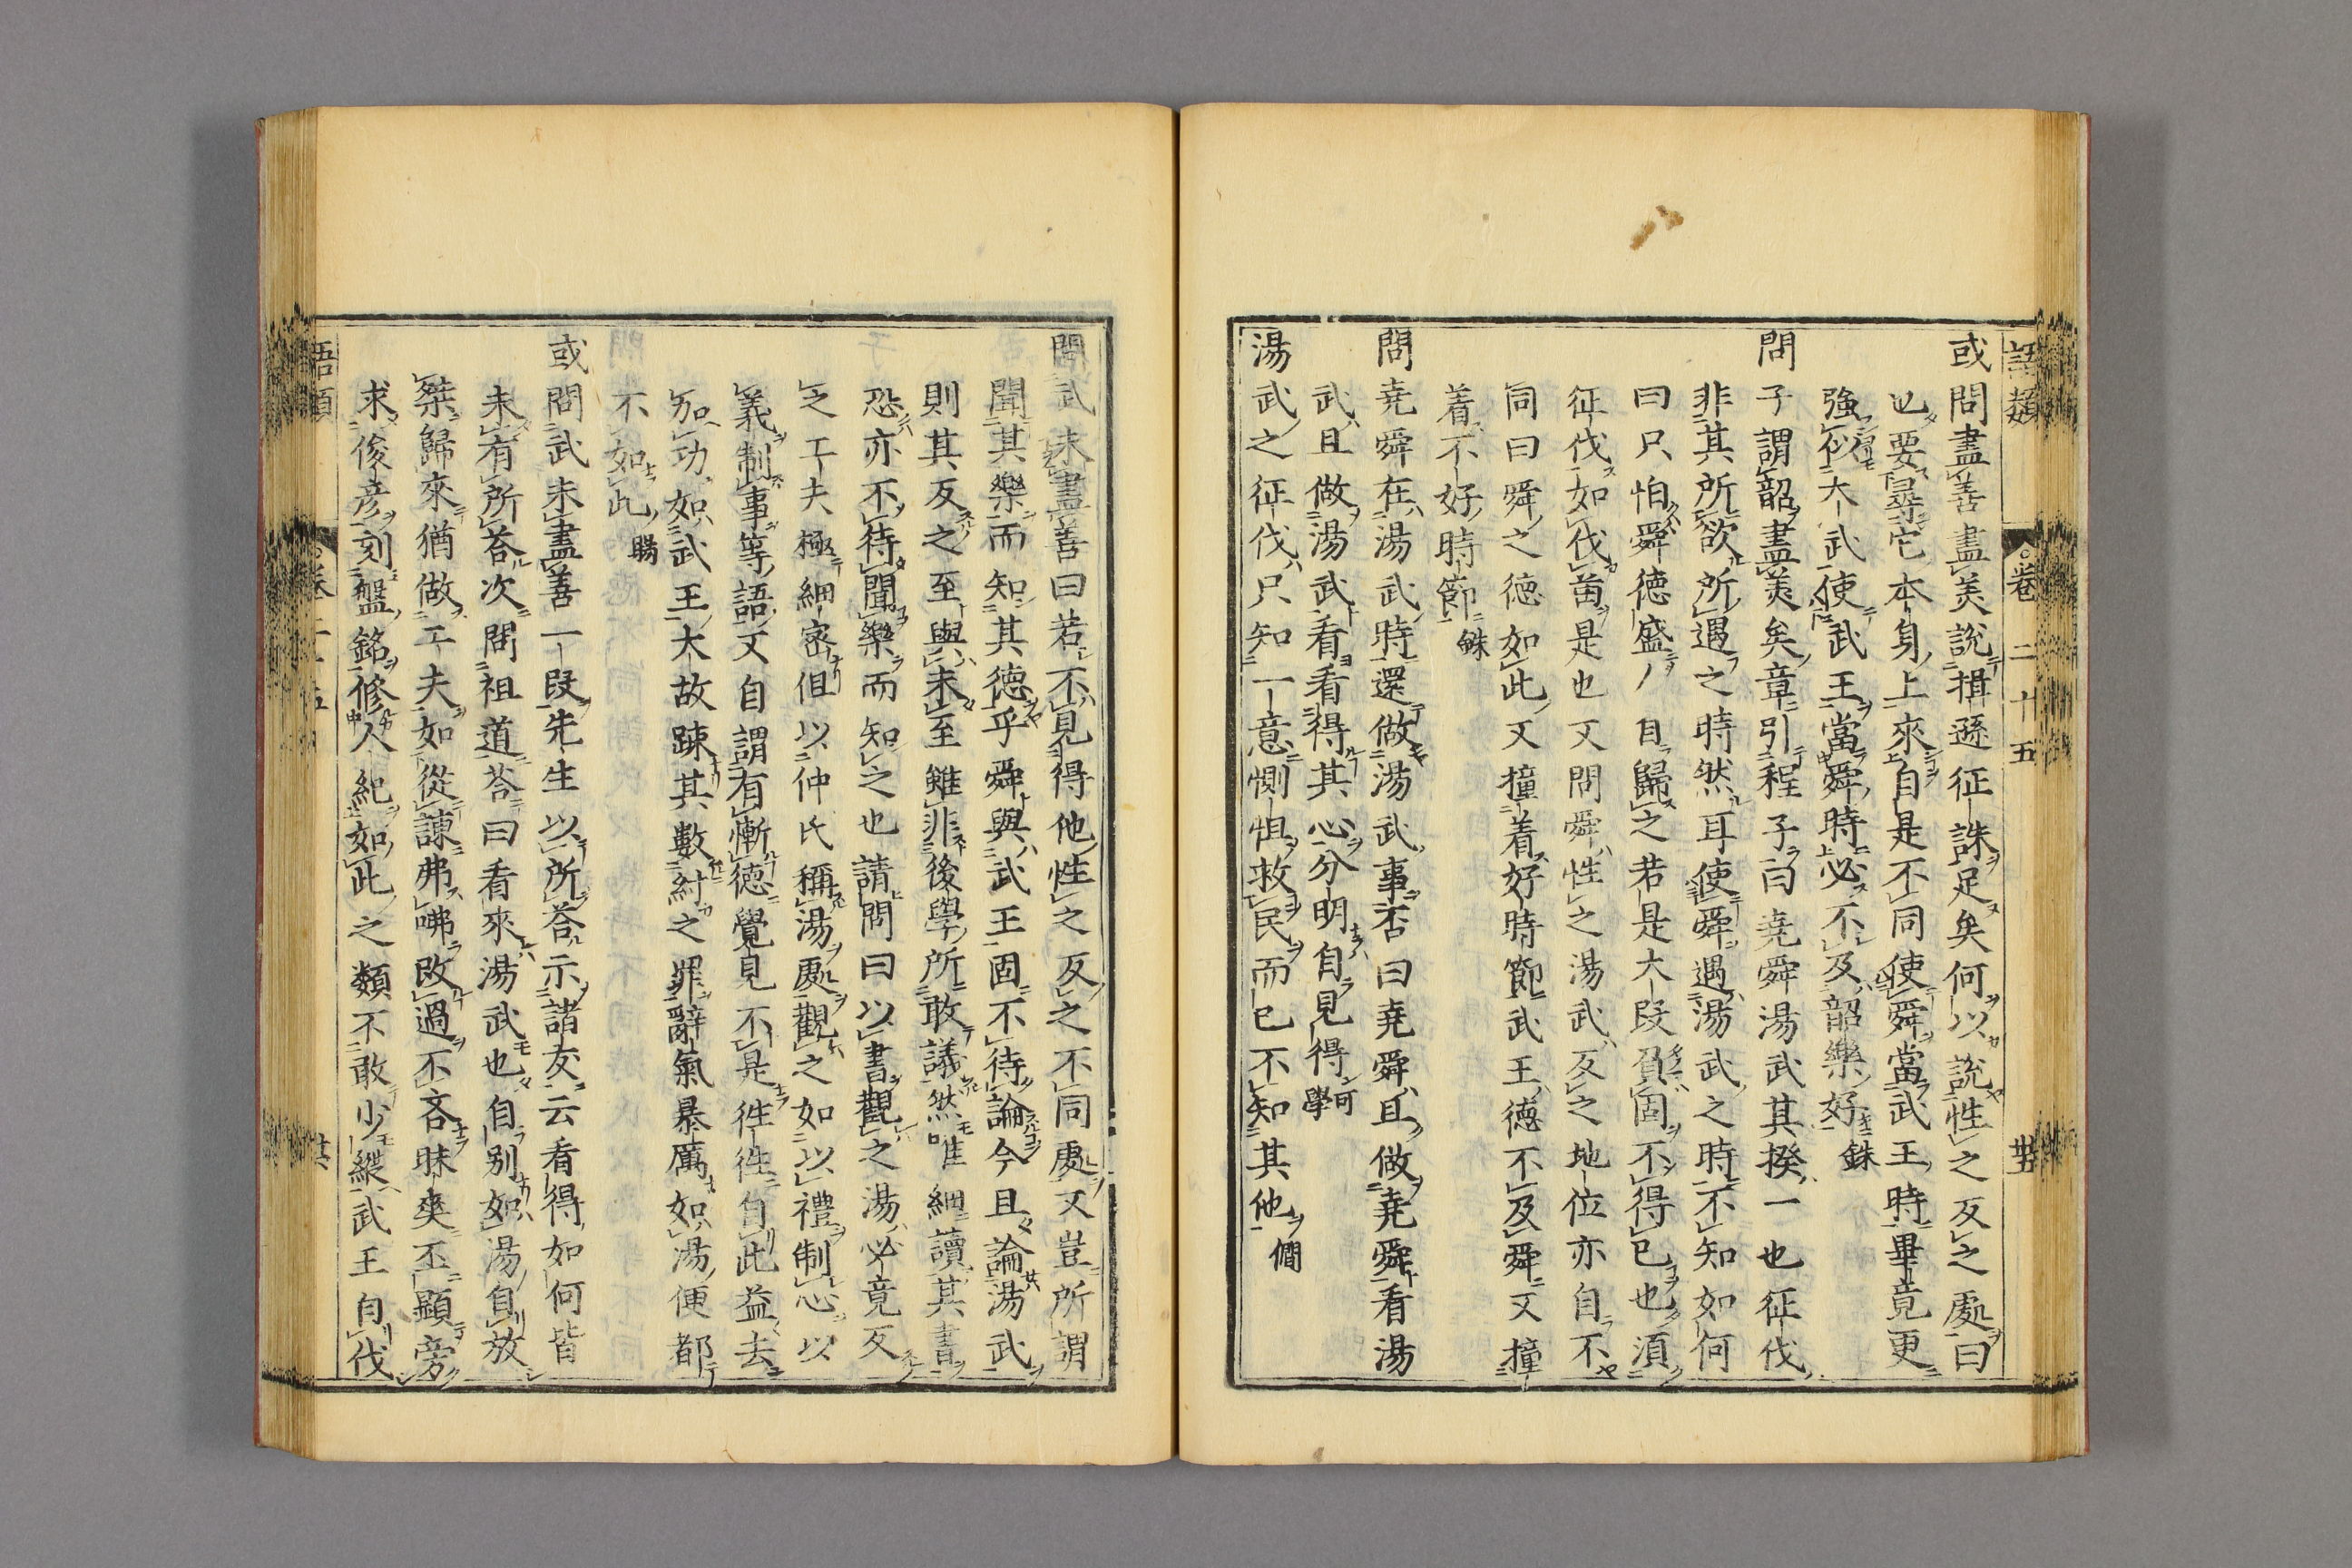 語類 卷二十五 廿五
或問盡善盡美說揖遜征誅足矣何以說性之反之處曰
也要尋它本身上來自是不同使舜當武王時畢竟更
強似大武使武王當舜時必不及韶樂好銖
問子謂韶盡美矣章引程子曰堯舜湯武其揆一也征伐
非其所欲所遇之時然耳使舜遇湯武之時不知如何
曰只怕舜德盛人自歸之若是大段負固不得已也須
征伐如伐苗是也又問舜性之湯武反之地位亦自不
同曰舜之德如此又撞着好時節武王德不及舜又撞
着不好時節銖
問堯舜在湯武時還做湯武事否曰堯舜且做堯舜看湯
武且做湯武看看得其心分明自見得可學
湯武之征伐只知一意惻怛救民而已不知其他僩
問武未盡善曰若不見得他性之反之不同處又豈所謂
聞其樂而知其德乎舜與武王固不待論今且論湯武
則其反之至與未至雖非後學所敢議然唯細讀其書
恐亦不待聞樂而知之也請問曰以書觀之湯必竟反
之工夫極細密但以仲氏稱湯處觀之如以禮制心以
義制事等語又自謂有慚德覺見不是往往自此益去
加功如武王大故疎其數紂之罪辭氣暴厲如湯便都
不如此賜
或問武未盡善一段先生以所荅示諸友云看得如何皆
未有所荅次問祖道荅曰看來湯武也自别如湯自放
桀歸來猶做工夫如從諫弗咈改過不吝昧爽丕顯旁
求俊彥刻盤銘修人紀如此之類不敢少縱武王自伐
語類 卷二十五 廿六